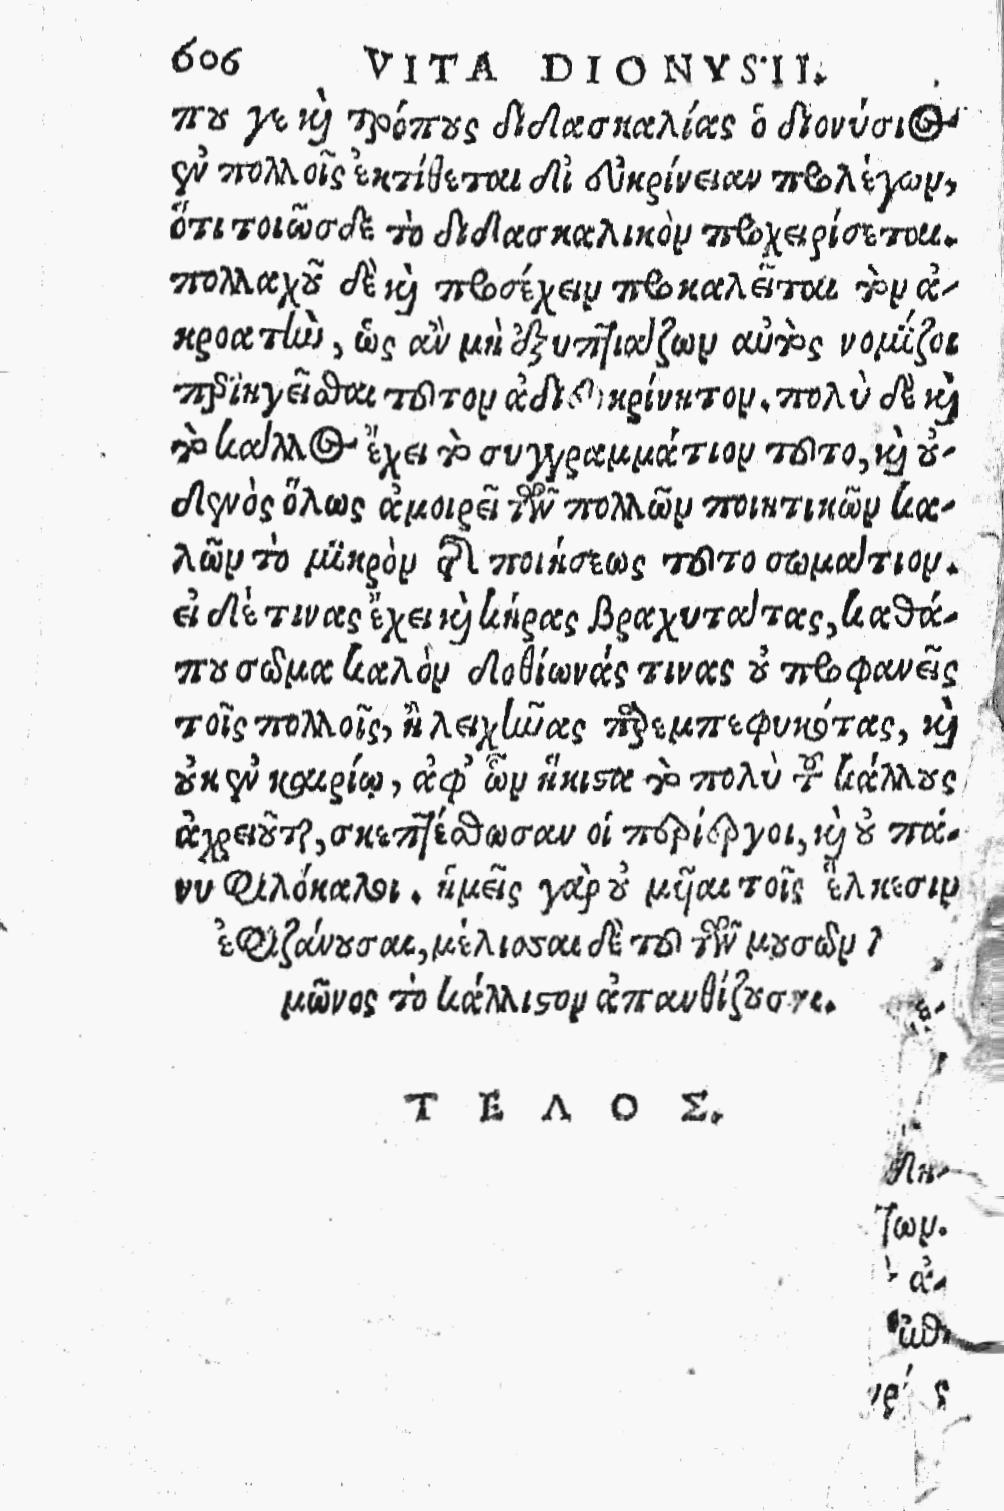 606 VITA DIONYSII.
που γε καὶ τρόπους διδασκαλίας ὁ διονύσιος
ἐν πολλοῖς ἐκτίθεται δι' εὐκρίνειαν προλέγων,
ὅτι τοιῶσδε τὸ διδασκαλικὸν προχειρίσεται.
πολλαχοῦ δὲ καὶ προσέχειν προκαλεῖται τὸν ἀ-
κροατὴν, ὡς ἂν μὴ ἐξυπτιάζων αὐτὸς νομίζοι
περιηγεῖσθαι τοῦτον ἀδιευκρίνητον. πολὺ δὲ καὶ
τὸ κάλλος ἔχει τὸ συγγραμμάτιον τοῦτο, καὶ οὐ-
δενὸς ὅλως ἀμοιρεῖ τῶν πολλῶν ποιητικῶν κα-
λῶν τὸ μικρὸν τῆς ποιήσεως τοῦτο σωμάτιον.
εἰ δέ τινας ἔχει καὶ κήρας βραχυτάτας, καθά-
που σῶμα καλὸν δοθίωνάς τινας οὐ προφανεῖς
τοῖς πολλοῖς, ἢ λειχῆνας παρεμπεφυκότας, καὶ
οὐκ ἐν καιρίῳ, ἀφ' ὧν ἥκιστα τὸ πολὺ τοῦ κάλλους
ἀχρειοῦται, σκεπτέσθωσαν οἱ περίεργοι, καὶ οὐ πά-
νυ φιλόκαλοι. ἡμεῖς γὰρ οὐ μυῖαι τοῖς ἕλκεσιν
ἐφιζάνουσαι, μέλισσαι δὲ τοῦ τῶν μουσῶν λ
μῶνος τὸ κάλλιστον ἀπανθίζουσαι.
ΤΕΛΟΣ.